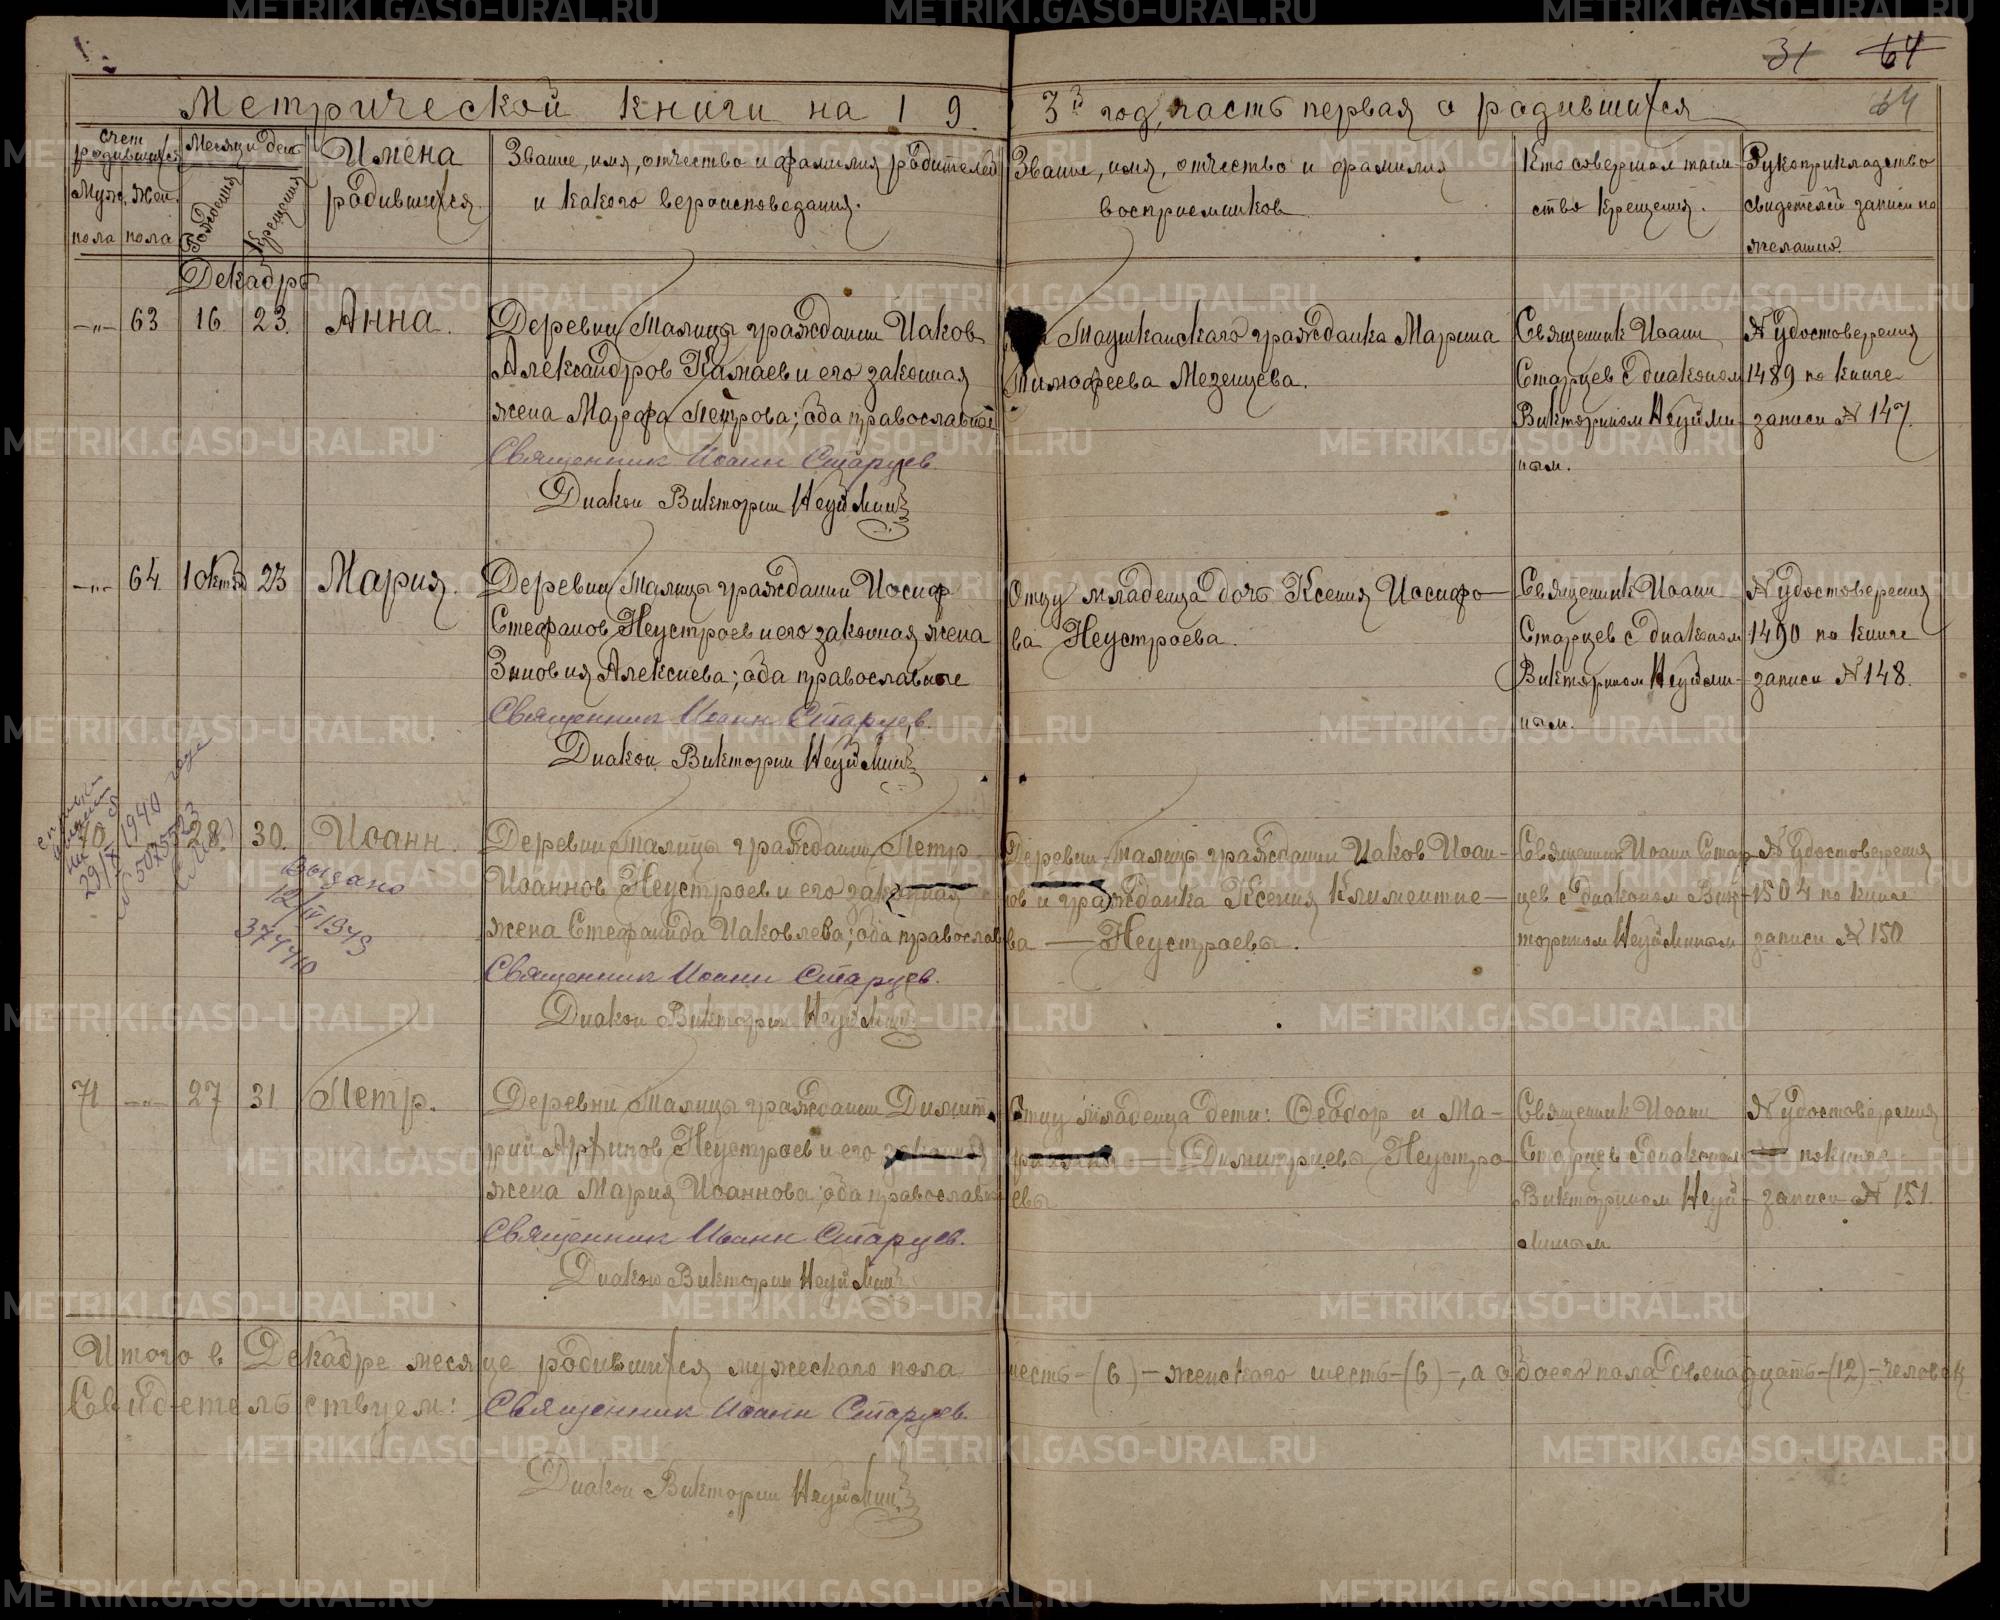 31 64
64
Метрической книги на 19
23й год, часть первая о родившихся
Счет родившихся
Муж. пола
Жен. пола
Месяц и день
Рождения
Крещения
Имена родившихся.
Звание, имя, отчество и фамилия родителей
и какого вероисповедания.
Звание, имя, отчество и фамилия
восприемников
Кто совершал таин-
ство крещения.
Рукоприкладство
свидетелей записи по
желанию.
Декабрь
—"— 63 16 23. Анна.
Деревни Талицы гражданин Иаков
Александров Камаев и его законная
жена Марфа Петрова; оба православные
Священник Иоанн Старцев.
Диакон Викторин Неуймин
Таушканского гражданка Марина
Тимофеева Мезенцева.
Священник Иоанн
Старцев с диаконом
Викторином Неуйми-
ным.
№ удостоверения
1489 по книге
записи № 147.
—"— 64 1 октяб 23 Мария.
Деревни Талицы гражданин Иосиф
Стефанов Неустроев и его законная жена
Зиновия Алексиева; оба православные
Священник Иоанн Старцев.
Диакон Викторин Неуймин
Отцу младенца дочь Ксения Иосифо-
ва Неустроева.
Священник Иоанн
Старцев с диаконом
Викторином Неуйми-
ным.
№ удостоверения
1490 по книге
записи № 148.
1940
29/X
5075523
70 28. 30. Иоанн.
Выдано
12/IV 1943
Деревни Талицы гражданин Петр
Иоаннов Неустроев и его законная
жена Стефанида Иаковлева; оба православ
Священник Иоанн Старцев.
Диакон Викторин Неуймин
Деревни Талицы гражданин Иаков Иоан-
нов и гражданка Ксения Климентие-
ва — Неустроевы.
Священник Иоанн Стар-
цев с диаконом Вик-
торином Неуйминым
№ удостоверения
1504 по книге
записи № 150
71 —"— 27 31 Петр.
Деревни Талицы гражданин Димит-
рий Архипов Неустроев и его законная
жена Мария Иоаннова; оба православные
Священник Иоанн Старцев.
Диакон Викторин Неуймин
Отцу младенца дети: Феодор и Ма-
— Димитриевы Неустро-
евы
Священник Иоанн
Старцев с диаконом
Викторином Неуй-
миным
№ удостоверения
— по книге
записи № 151.
Итого в Декабре месяце родившихся мужеского пола
шесть-(6)-женского шесть-(6)-, а обоего пола двенадцать-(12)-человек
Свидетельствуем: Священник Иоанн Старцев.
Диакон Викторин Неуймин
METRIKI.GASO-URAL.RU